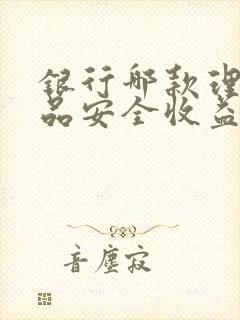 银行哪款理
品安全收益
音尘寂